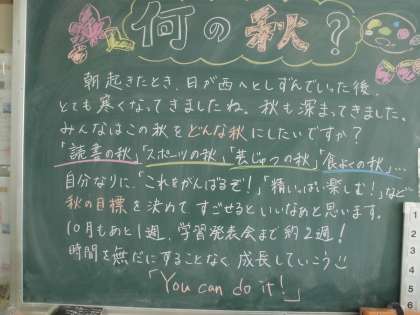 何の秋？
朝起きたとき、日が西へとしずんでいった後、
とても寒くなってきましたね。秋も深まってきました。
みんなはこの秋をどんな秋にしたいですか？
「読書の秋」「スポーツの秋」「芸じゅつの秋」「食よくの秋」…
自分なりに、「これをがんばるぞ！」「精いっぱい楽しむ！」など
秋の目標を決めて すごせるといいなぁと思います。
10月もあと1週、学習発表会まで約2週！
時間を無だにすることなく成長していこう
「You can do it！」
1
2
3
4
5
6